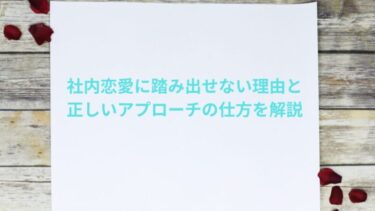 社内恋愛に踏み出せない理由と
正しいアプローチの仕方を解説